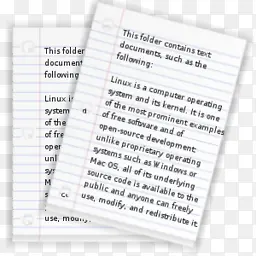 This folder contains text
documents, such as the
following:
Linux is a computer operating
system and its kernel. It is one
of the most prominent examples
of free software and of
open-source development
unlike proprietary operating
systems such as Windows or
Mac OS, all of its underlying
source code is available to the
public and anyone can freely
use, modify, and redistribute it
This folder
document
following
Linux is
system a
of the
of fre
open
unlik
syst
Mac
sou
pub
use, modify,